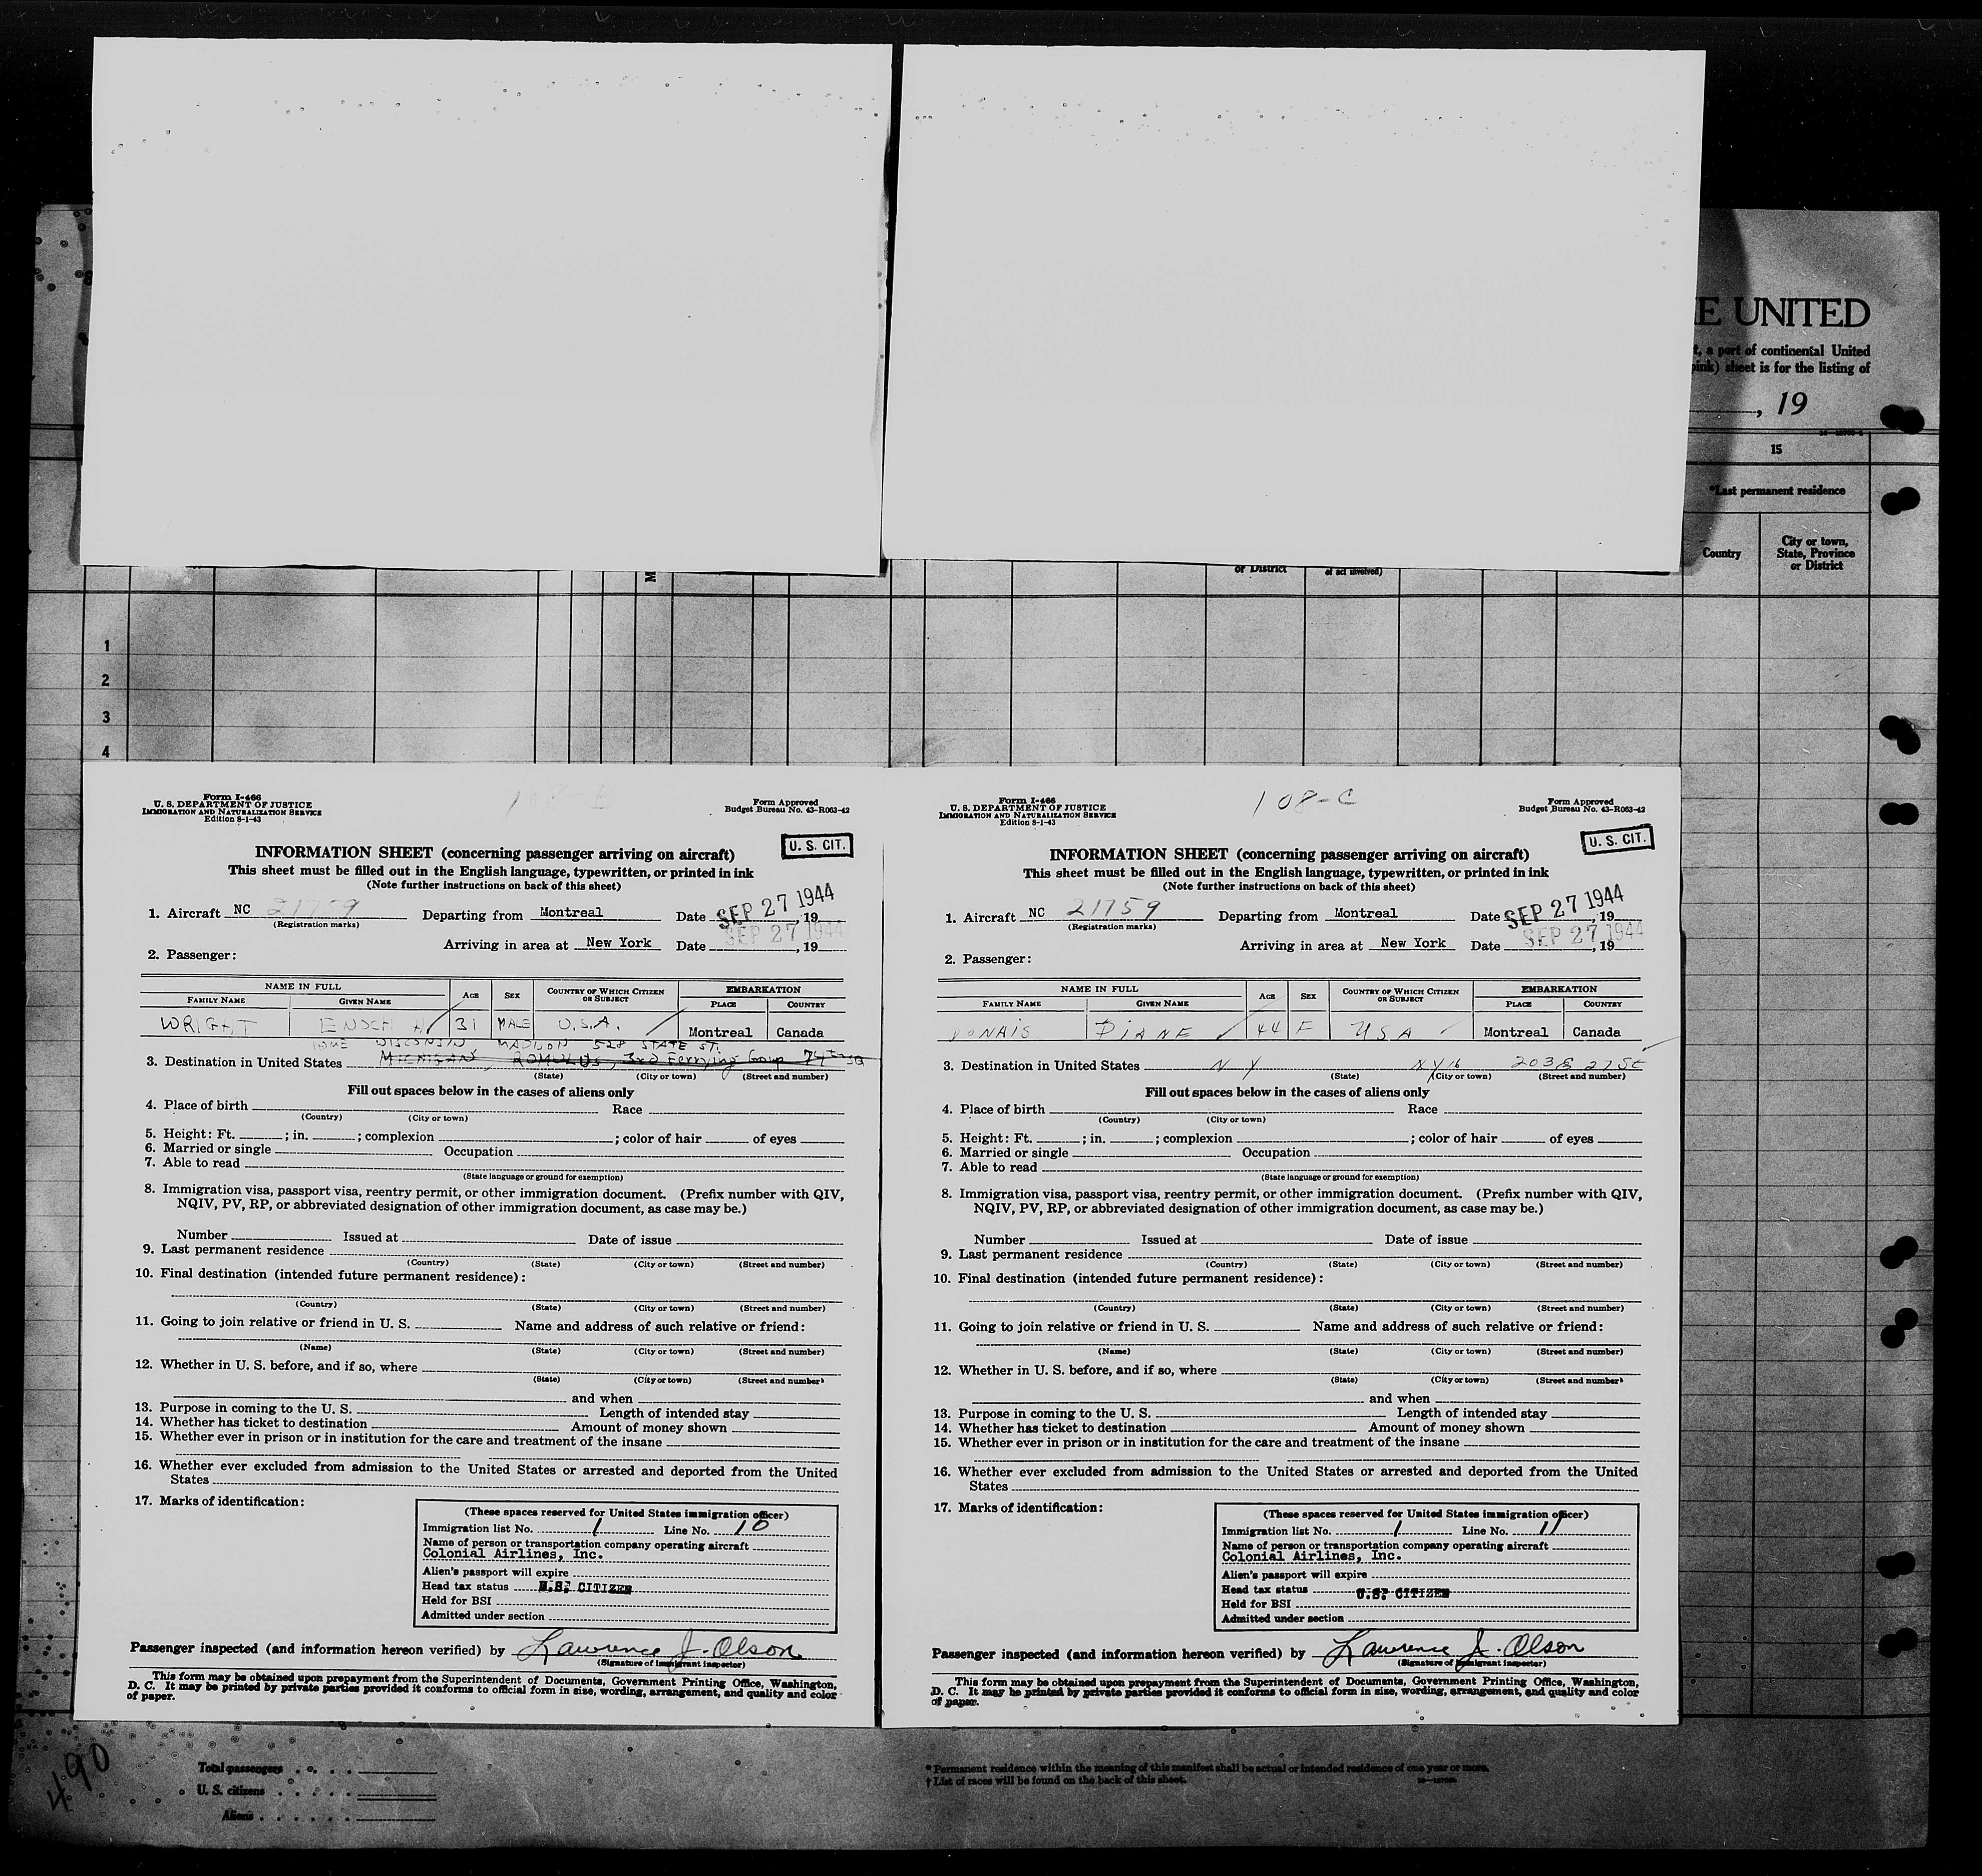 E UNITED
t, a part of continental United
pink) sheet is for the listing of
, 19
15
*Last permanent residence
Country
City or town,
State, Province
or District
or District
of act involved)
M
1
2
3
4
Form I-466
U. S. DEPARTMENT OF JUSTICE
IMMIGRATION AND NATURALIZATION SERVICE
Edition 8-1-43
Form Approved
Budget Bureau No. 43-R063-42
U. S. CIT.
INFORMATION SHEET (concerning passenger arriving on aircraft)
This sheet must be filled out in the English language, typewritten, or printed in ink
(Note further instructions on back of this sheet)
1. Aircraft NC 21759 Departing from Montreal Date SEP 27 1944, 19
(Registration marks)
Arriving in area at New York Date SEP 27 1944, 19
2. Passenger:
NAME IN FULL AGE SEX COUNTRY OF WHICH CITIZEN OR SUBJECT EMBARKATION
FAMILY NAME GIVEN NAME PLACE COUNTRY
WRIGHT ENOCH H 31 MALE U.S.A. Montreal Canada
HOME WISCONSIN, MADISON 528 STATE ST.
3. Destination in United States MICHIGAN, ROMULUS, 3rd Ferrying Group 74th SQ
(State) (City or town) (Street and number)
Fill out spaces below in the cases of aliens only
4. Place of birth Race
(Country) (City or town)
5. Height: Ft. ; in. ; complexion ; color of hair of eyes
6. Married or single Occupation
7. Able to read
(State language or ground for exemption)
8. Immigration visa, passport visa, reentry permit, or other immigration document. (Prefix number with QIV,
NQIV, PV, RP, or abbreviated designation of other immigration document, as case may be.)
Number Issued at Date of issue
9. Last permanent residence
(Country) (State) (City or town) (Street and number)
10. Final destination (intended future permanent residence):
(Country) (State) (City or town) (Street and number)
11. Going to join relative or friend in U. S. Name and address of such relative or friend:
(Name) (State) (City or town) (Street and number)
12. Whether in U. S. before, and if so, where
(State) (City or town) (Street and number)
and when
13. Purpose in coming to the U. S. Length of intended stay
14. Whether has ticket to destination Amount of money shown
15. Whether ever in prison or in institution for the care and treatment of the insane
16. Whether ever excluded from admission to the United States or arrested and deported from the United
States
17. Marks of identification:
(These spaces reserved for United States immigration officer)
Immigration list No. 1 Line No. 10
Name of person or transportation company operating aircraft
Colonial Airlines, Inc.
Alien's passport will expire
Head tax status U.S. CITIZEN
Held for BSI
Admitted under section
Passenger inspected (and information hereon verified) by Lawrence J. Olson
(Signature of immigrant inspector)
This form may be obtained upon prepayment from the Superintendent of Documents, Government Printing Office, Washington,
D. C. It may be printed by private parties provided it conforms to official form in size, wording, arrangement, and quality and color
of paper.
Form I-466
U. S. DEPARTMENT OF JUSTICE
IMMIGRATION AND NATURALIZATION SERVICE
Edition 8-1-43
108-C
Form Approved
Budget Bureau No. 43-R063-42
U. S. CIT.
INFORMATION SHEET (concerning passenger arriving on aircraft)
This sheet must be filled out in the English language, typewritten, or printed in ink
(Note further instructions on back of this sheet)
1. Aircraft NC 21759 Departing from Montreal Date SEP 27 1944, 19
(Registration marks)
Arriving in area at New York Date SEP 27 1944, 19
2. Passenger:
NAME IN FULL AGE SEX COUNTRY OF WHICH CITIZEN OR SUBJECT EMBARKATION
FAMILY NAME GIVEN NAME PLACE COUNTRY
DIANE 44 F USA Montreal Canada
3. Destination in United States N Y N Y 16 203 E 27 St
(State) (City or town) (Street and number)
Fill out spaces below in the cases of aliens only
4. Place of birth Race
(Country) (City or town)
5. Height: Ft. ; in. ; complexion ; color of hair of eyes
6. Married or single Occupation
7. Able to read
(State language or ground for exemption)
8. Immigration visa, passport visa, reentry permit, or other immigration document. (Prefix number with QIV,
NQIV, PV, RP, or abbreviated designation of other immigration document, as case may be.)
Number Issued at Date of issue
9. Last permanent residence
(Country) (State) (City or town) (Street and number)
10. Final destination (intended future permanent residence):
(Country) (State) (City or town) (Street and number)
11. Going to join relative or friend in U. S. Name and address of such relative or friend:
(Name) (State) (City or town) (Street and number)
12. Whether in U. S. before, and if so, where
(State) (City or town) (Street and number)
and when
13. Purpose in coming to the U. S. Length of intended stay
14. Whether has ticket to destination Amount of money shown
15. Whether ever in prison or in institution for the care and treatment of the insane
16. Whether ever excluded from admission to the United States or arrested and deported from the United
States
17. Marks of identification:
(These spaces reserved for United States immigration officer)
Immigration list No. 1 Line No. 11
Name of person or transportation company operating aircraft
Colonial Airlines, Inc.
Alien's passport will expire
Head tax status U.S. CITIZEN
Held for BSI
Admitted under section
Passenger inspected (and information hereon verified) by Lawrence J. Olson
(Signature of immigrant inspector)
This form may be obtained upon prepayment from the Superintendent of Documents, Government Printing Office, Washington,
D. C. It may be printed by private parties provided it conforms to official form in size, wording, arrangement, and quality and color
of paper.
490
Total passengers
U. S. citizens
Aliens
* Permanent residence within the meaning of this manifest shall be actual or intended residence of one year or more.
† List of races will be found on the back of this sheet.